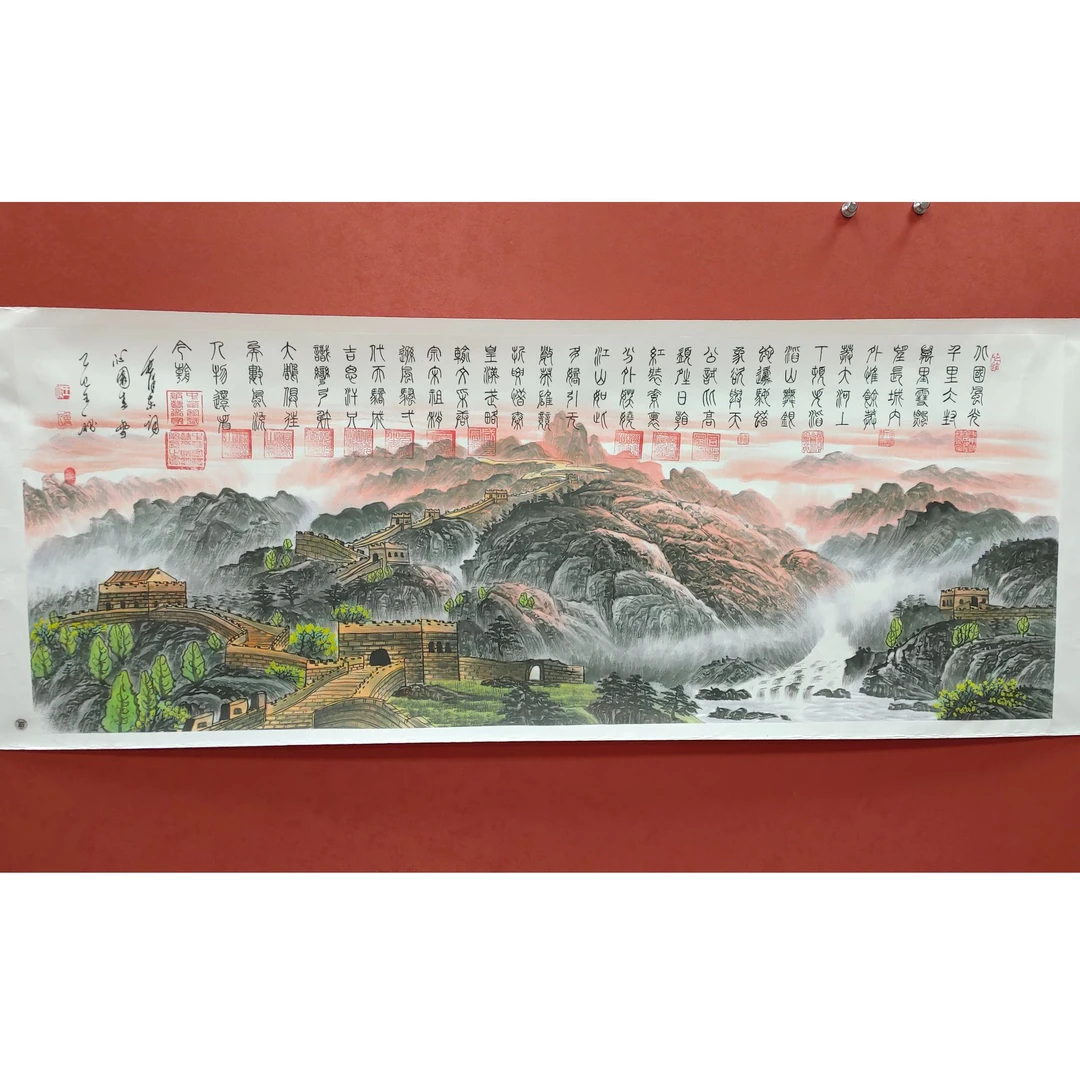 北國風光
千里冰封
萬里雪飄
望長城內
外惟餘莽
莽大河上
下頓失滔
滔山舞銀
蛇原馳蜡
象欲與天
公試比高
須晴日看
紅裝素裹
分外妖嬈
江山如此
多嬌引無
數英雄競
折腰惜秦
皇漢武略
輸文采唐
宗宋祖稍
遜風騷弌
代天驕成
吉思汗只
識彎弓射
大鵰俱往
矣數風流
人物還看
今朝
毛澤東詞
沁園春雪
乙巳年